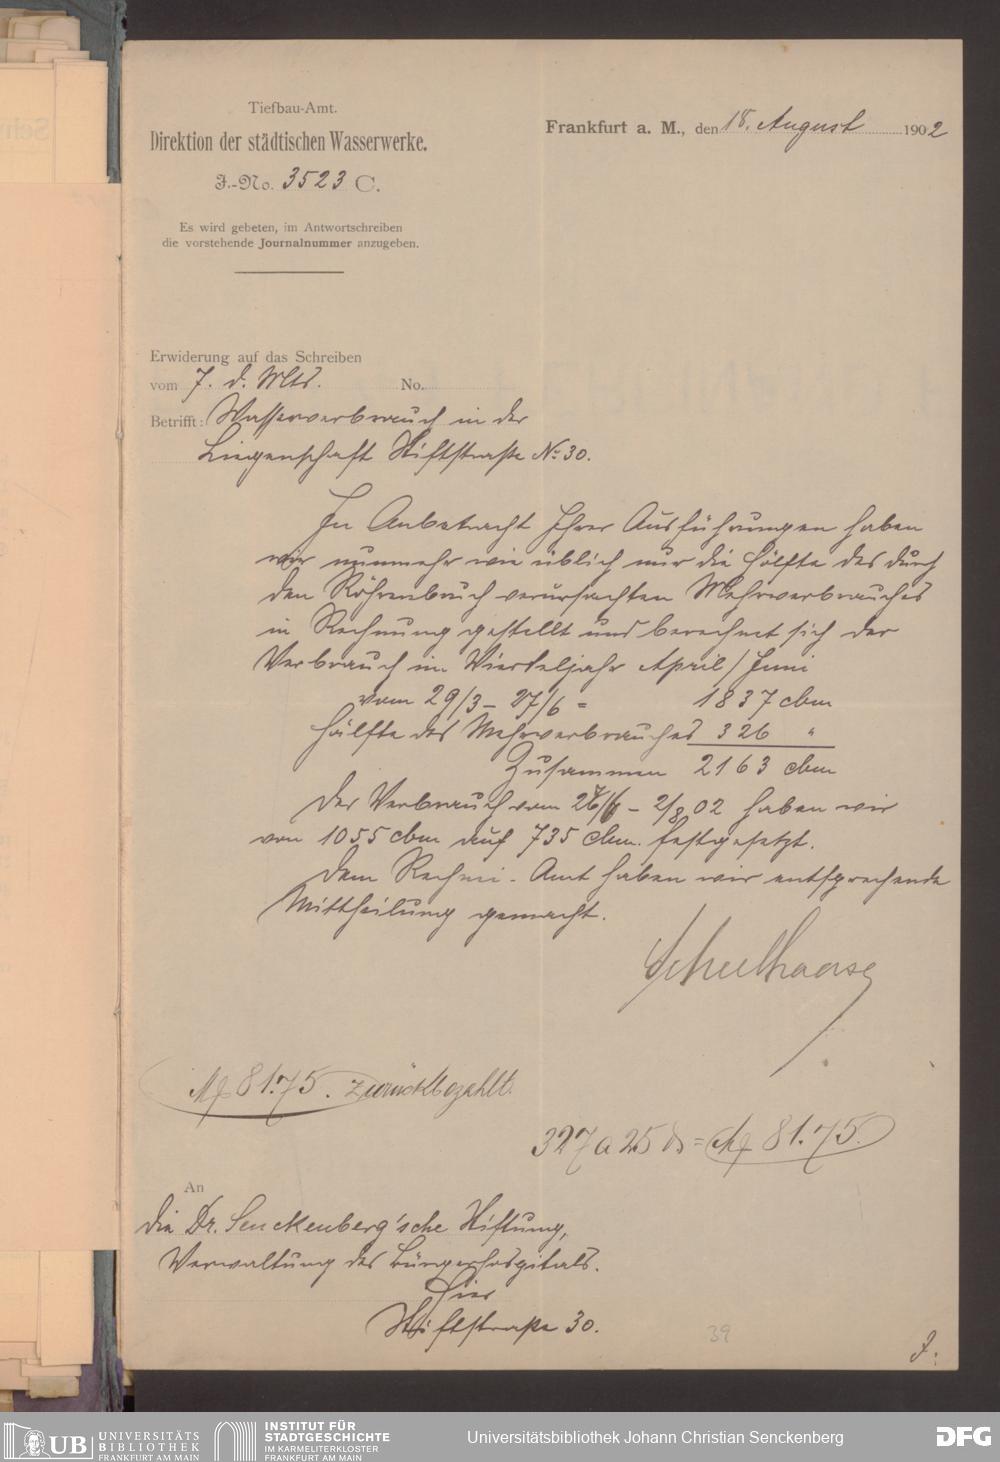 Tiefbau-Amt.
Direktion der städtischen Wasserwerke.
J.-No. 3523 C.
Es wird gebeten, im Antwortschreiben
die vorstehende Journalnummer anzugeben.
Frankfurt a. M., den 18. August 1902
Erwiderung auf das Schreiben
vom 7. d. Mts. No.
Betrifft: Wasserverbrauch in der
Liegenschaft Stiftstraße No 30.
In Anbetracht Ihrer Ausführungen haben
wir nunmehr wie üblich nur die Hälfte des durch
den Röhrenbruch verursachten Mehrverbrauches
in Rechnung gestellt und berechnet sich der
Verbrauch im Vierteljahr April/Juni
vom 29/3 – 27/6 = 1837 cbm
Hälfte des Mehrverbrauches 326 "
Zusammen 2163 cbm
Der Verbrauch vom 27/6 – 2/8 02 haben wir
von 1055 cbm auf 735 cbm. festgesetzt.
Dem Rechnei-Amt haben wir entsprechende
Mittheilung gemacht.
Scheelhaase
M 81.75. zurückbezahlt.
327 a 25 d = M 81.75.
An
die Dr. Senckenberg'sche Stiftung,
Verwaltung des Bürgerhospitals.
Hier
Stiftstraße 30.
39
UB UNIVERSITÄTS
BIBLIOTHEK
FRANKFURT AM MAIN
INSTITUT FÜR
STADTGESCHICHTE
IM KARMELITERKLOSTER
FRANKFURT AM MAIN
Universitätsbibliothek Johann Christian Senckenberg
DFG